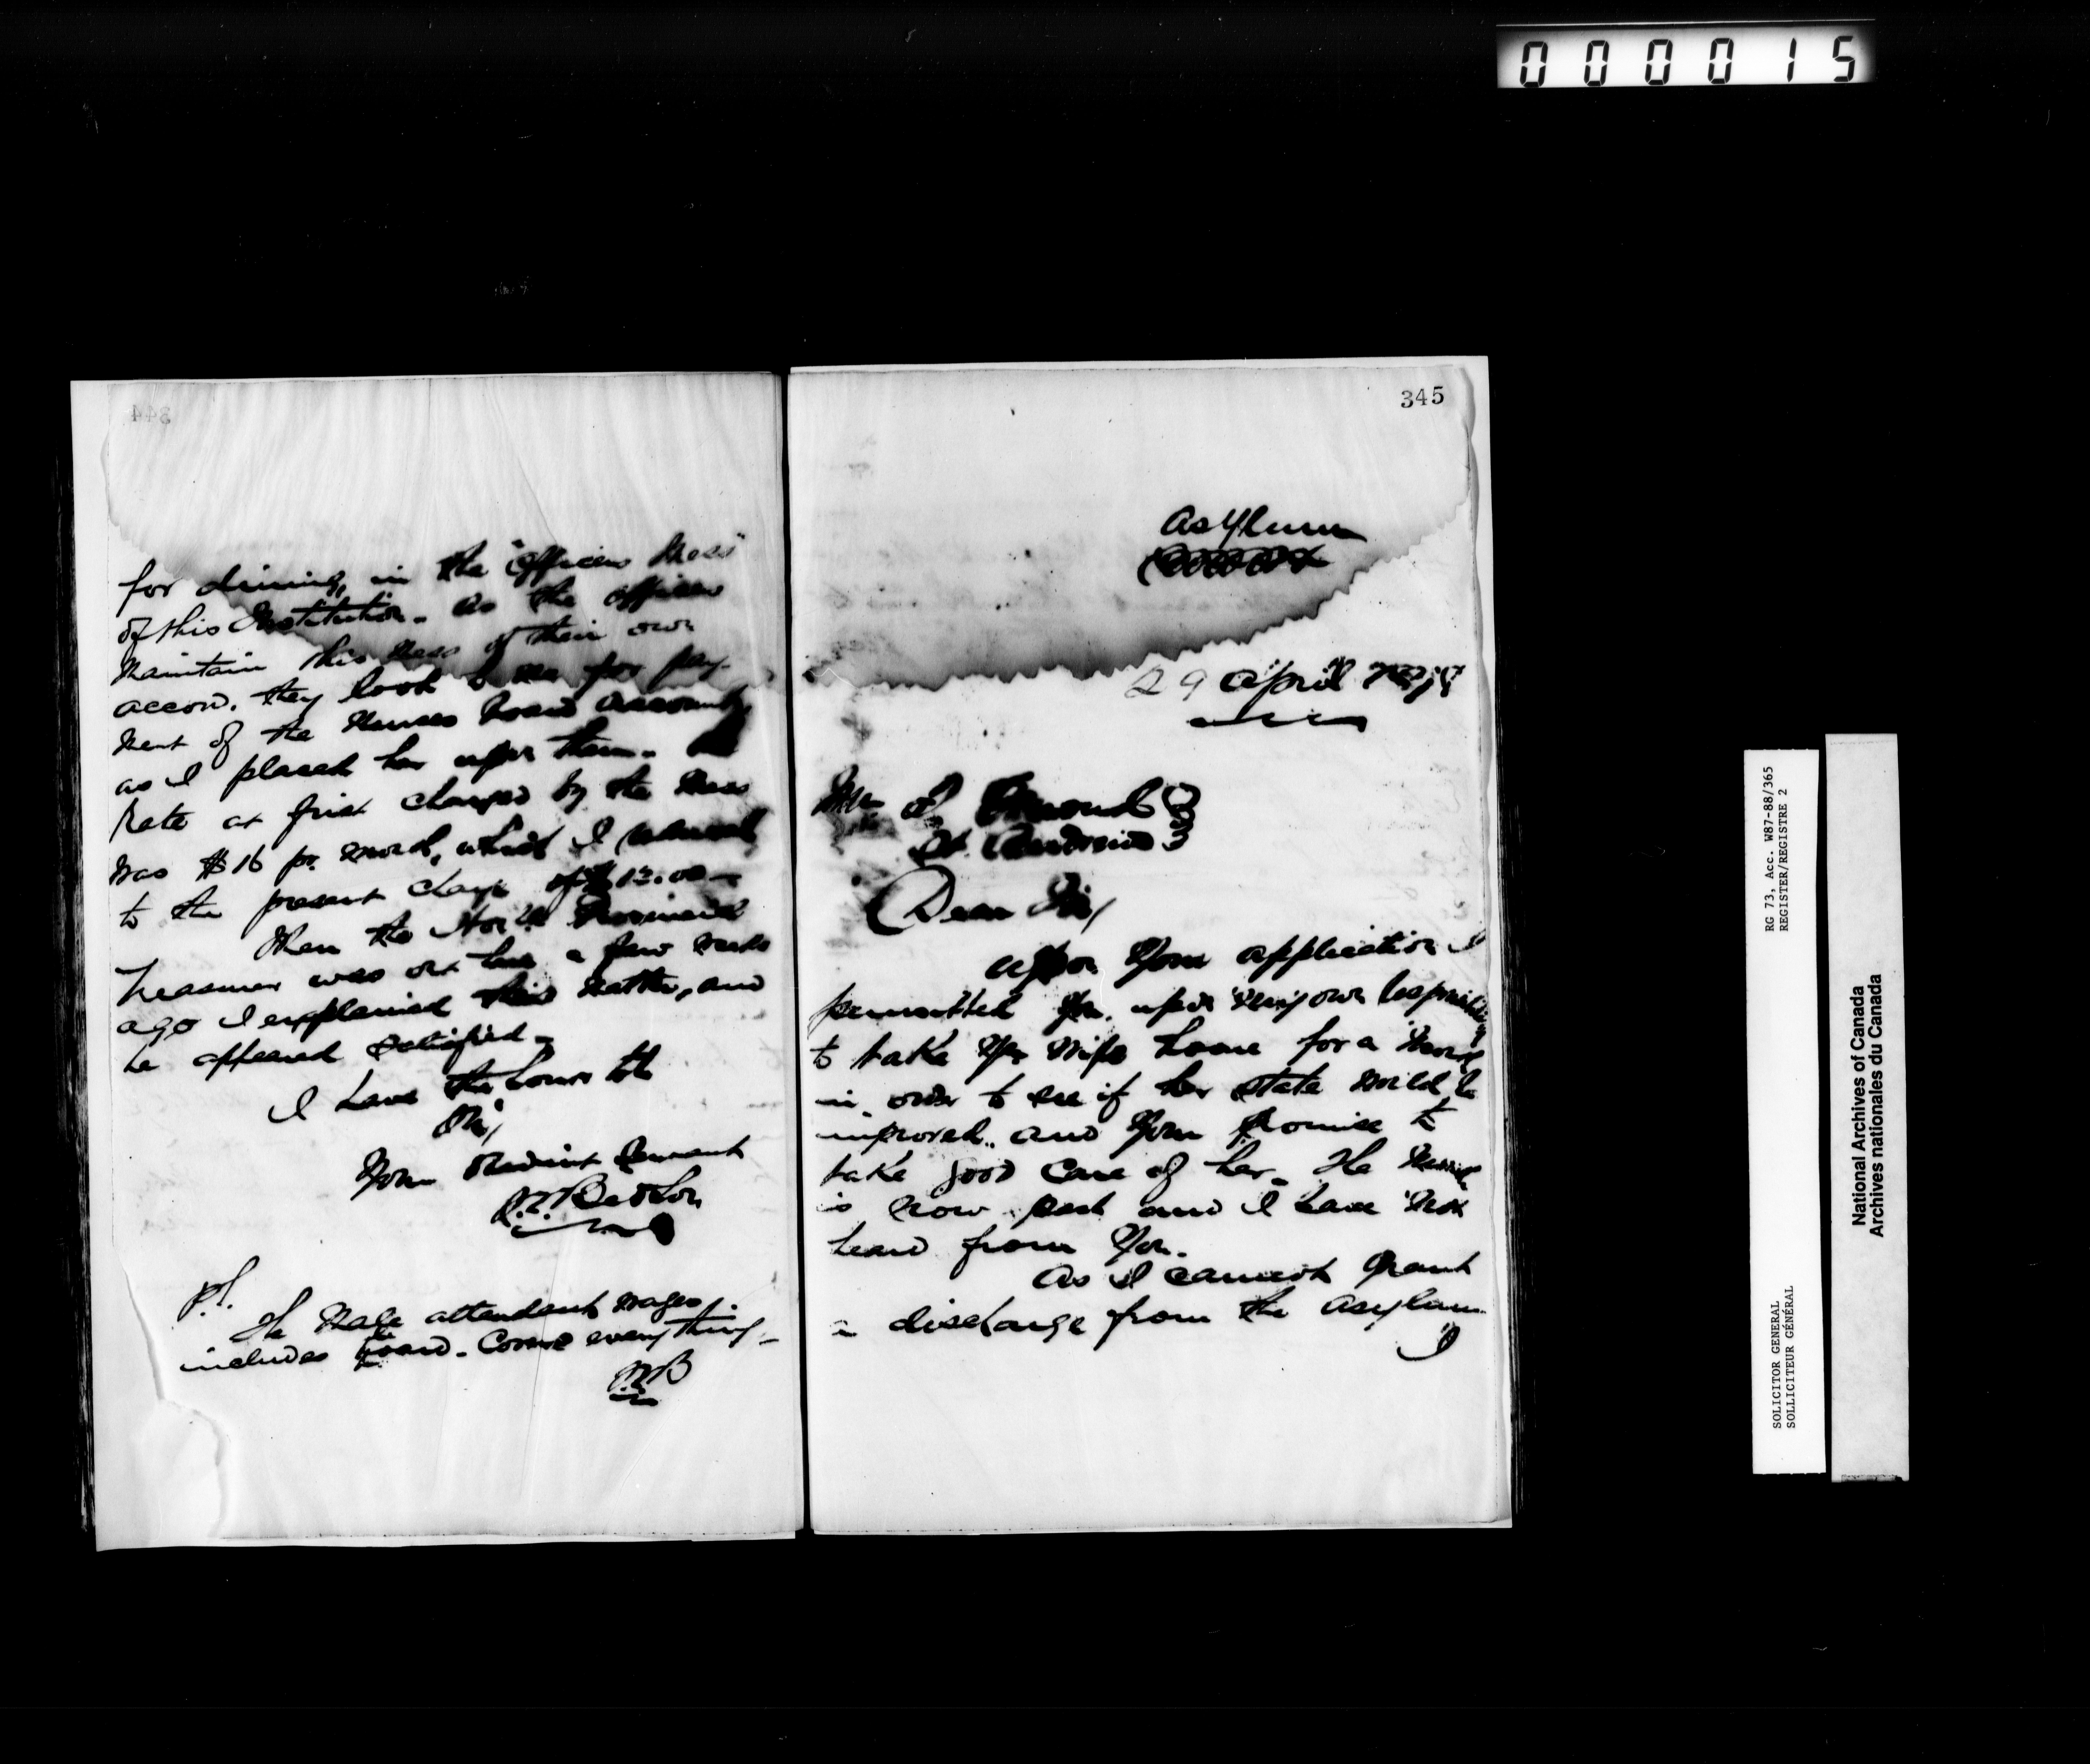 000015
344
for dining, in the "Officers Mess"
of this Institution. as the officers
maintain this mess of their own
accord, they look to me for pay-
ment of the Nurses board account,
as I placed her upon them.
Rate at first charged by the Mess
was $16 pr. month, which I reduced
to the present charge of $12.00
When the Hon'le Provincial
Treasurer was out here a few weeks
ago I explained this matter, and
he appeared satisfied
I have the honor to be
Sir,
Your obedient servant
Bedson
P.S.
The Male attendant wages
includes board. Covers everything
B
345
Asylum
29 April
Mr
St. Andrews
Dear Sir,
Upon your application I
permitted you, upon your own responsibility
to take your wife home for a month
in order to see if her state would be
improved, and your promise to
take good care of her. The month
is now past and I have not
heard from you.
As I cannot grant
a discharge from the Asylum
I
RG 73, Acc. W87-88/365
REGISTER/REGISTRE 2
SOLICITOR GENERAL
SOLLICITEUR GÉNÉRAL
National Archives of Canada
Archives nationales du Canada